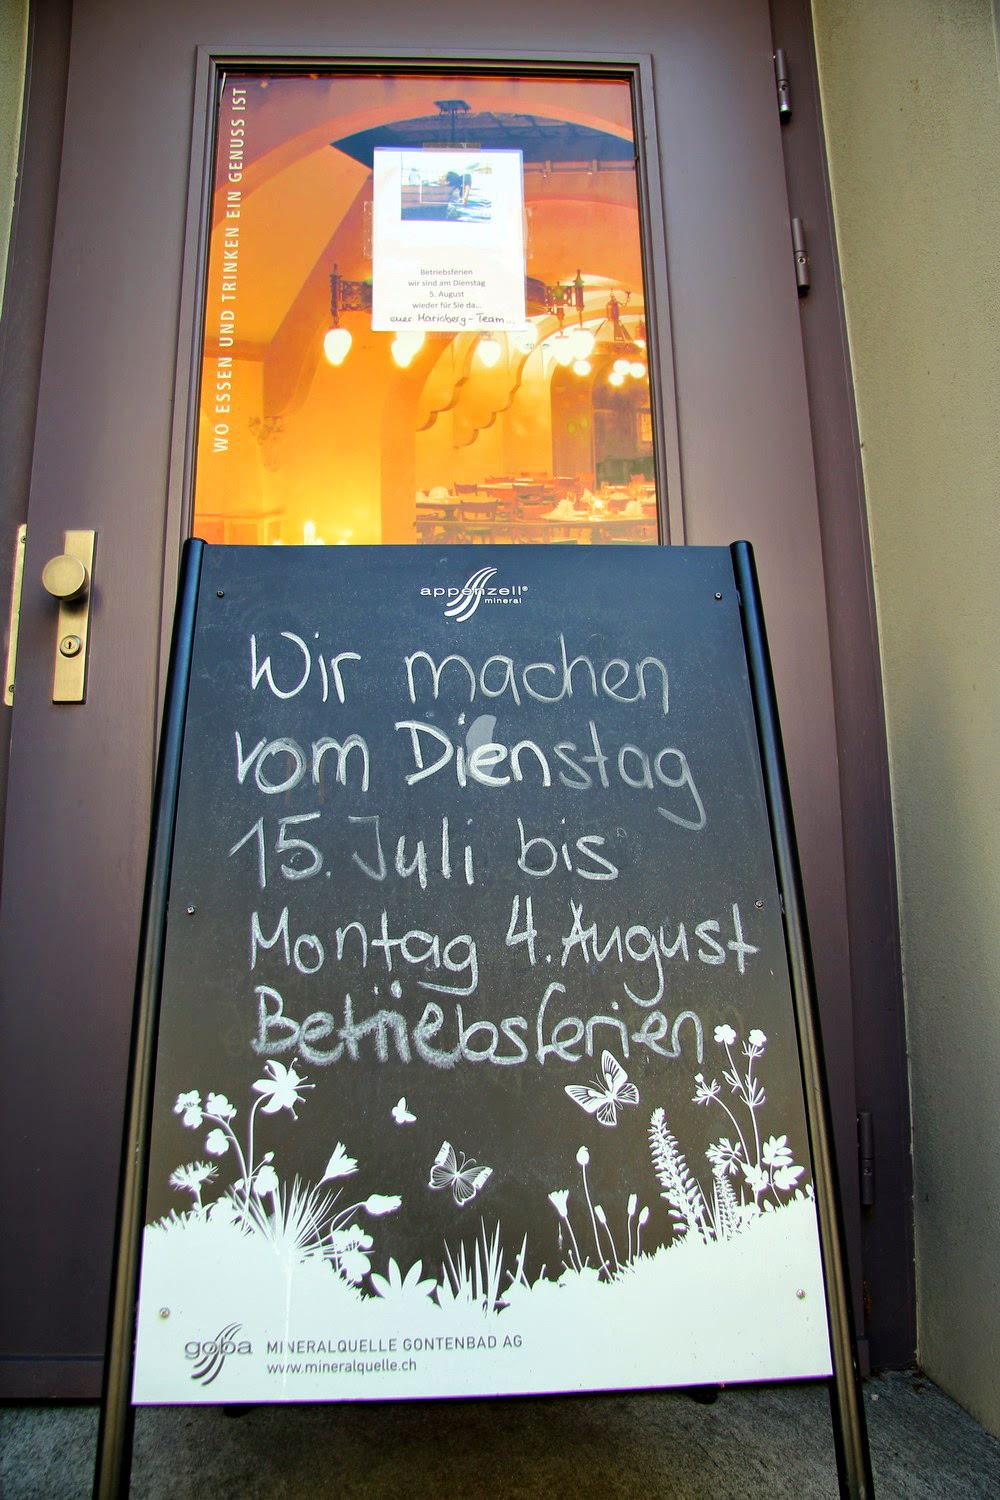 WO ESSEN UND TRINKEN EIN GENUSS IST
Betriebsferien
wir sind am Dienstag
5. August
wieder für Sie da...
euer Mariaberg-Team...
appenzell®
mineral
Wir machen
vom Dienstag
15. Juli bis
Montag 4. August
Betriebsferien
goba MINERALQUELLE GONTENBAD AG
www.mineralquelle.ch